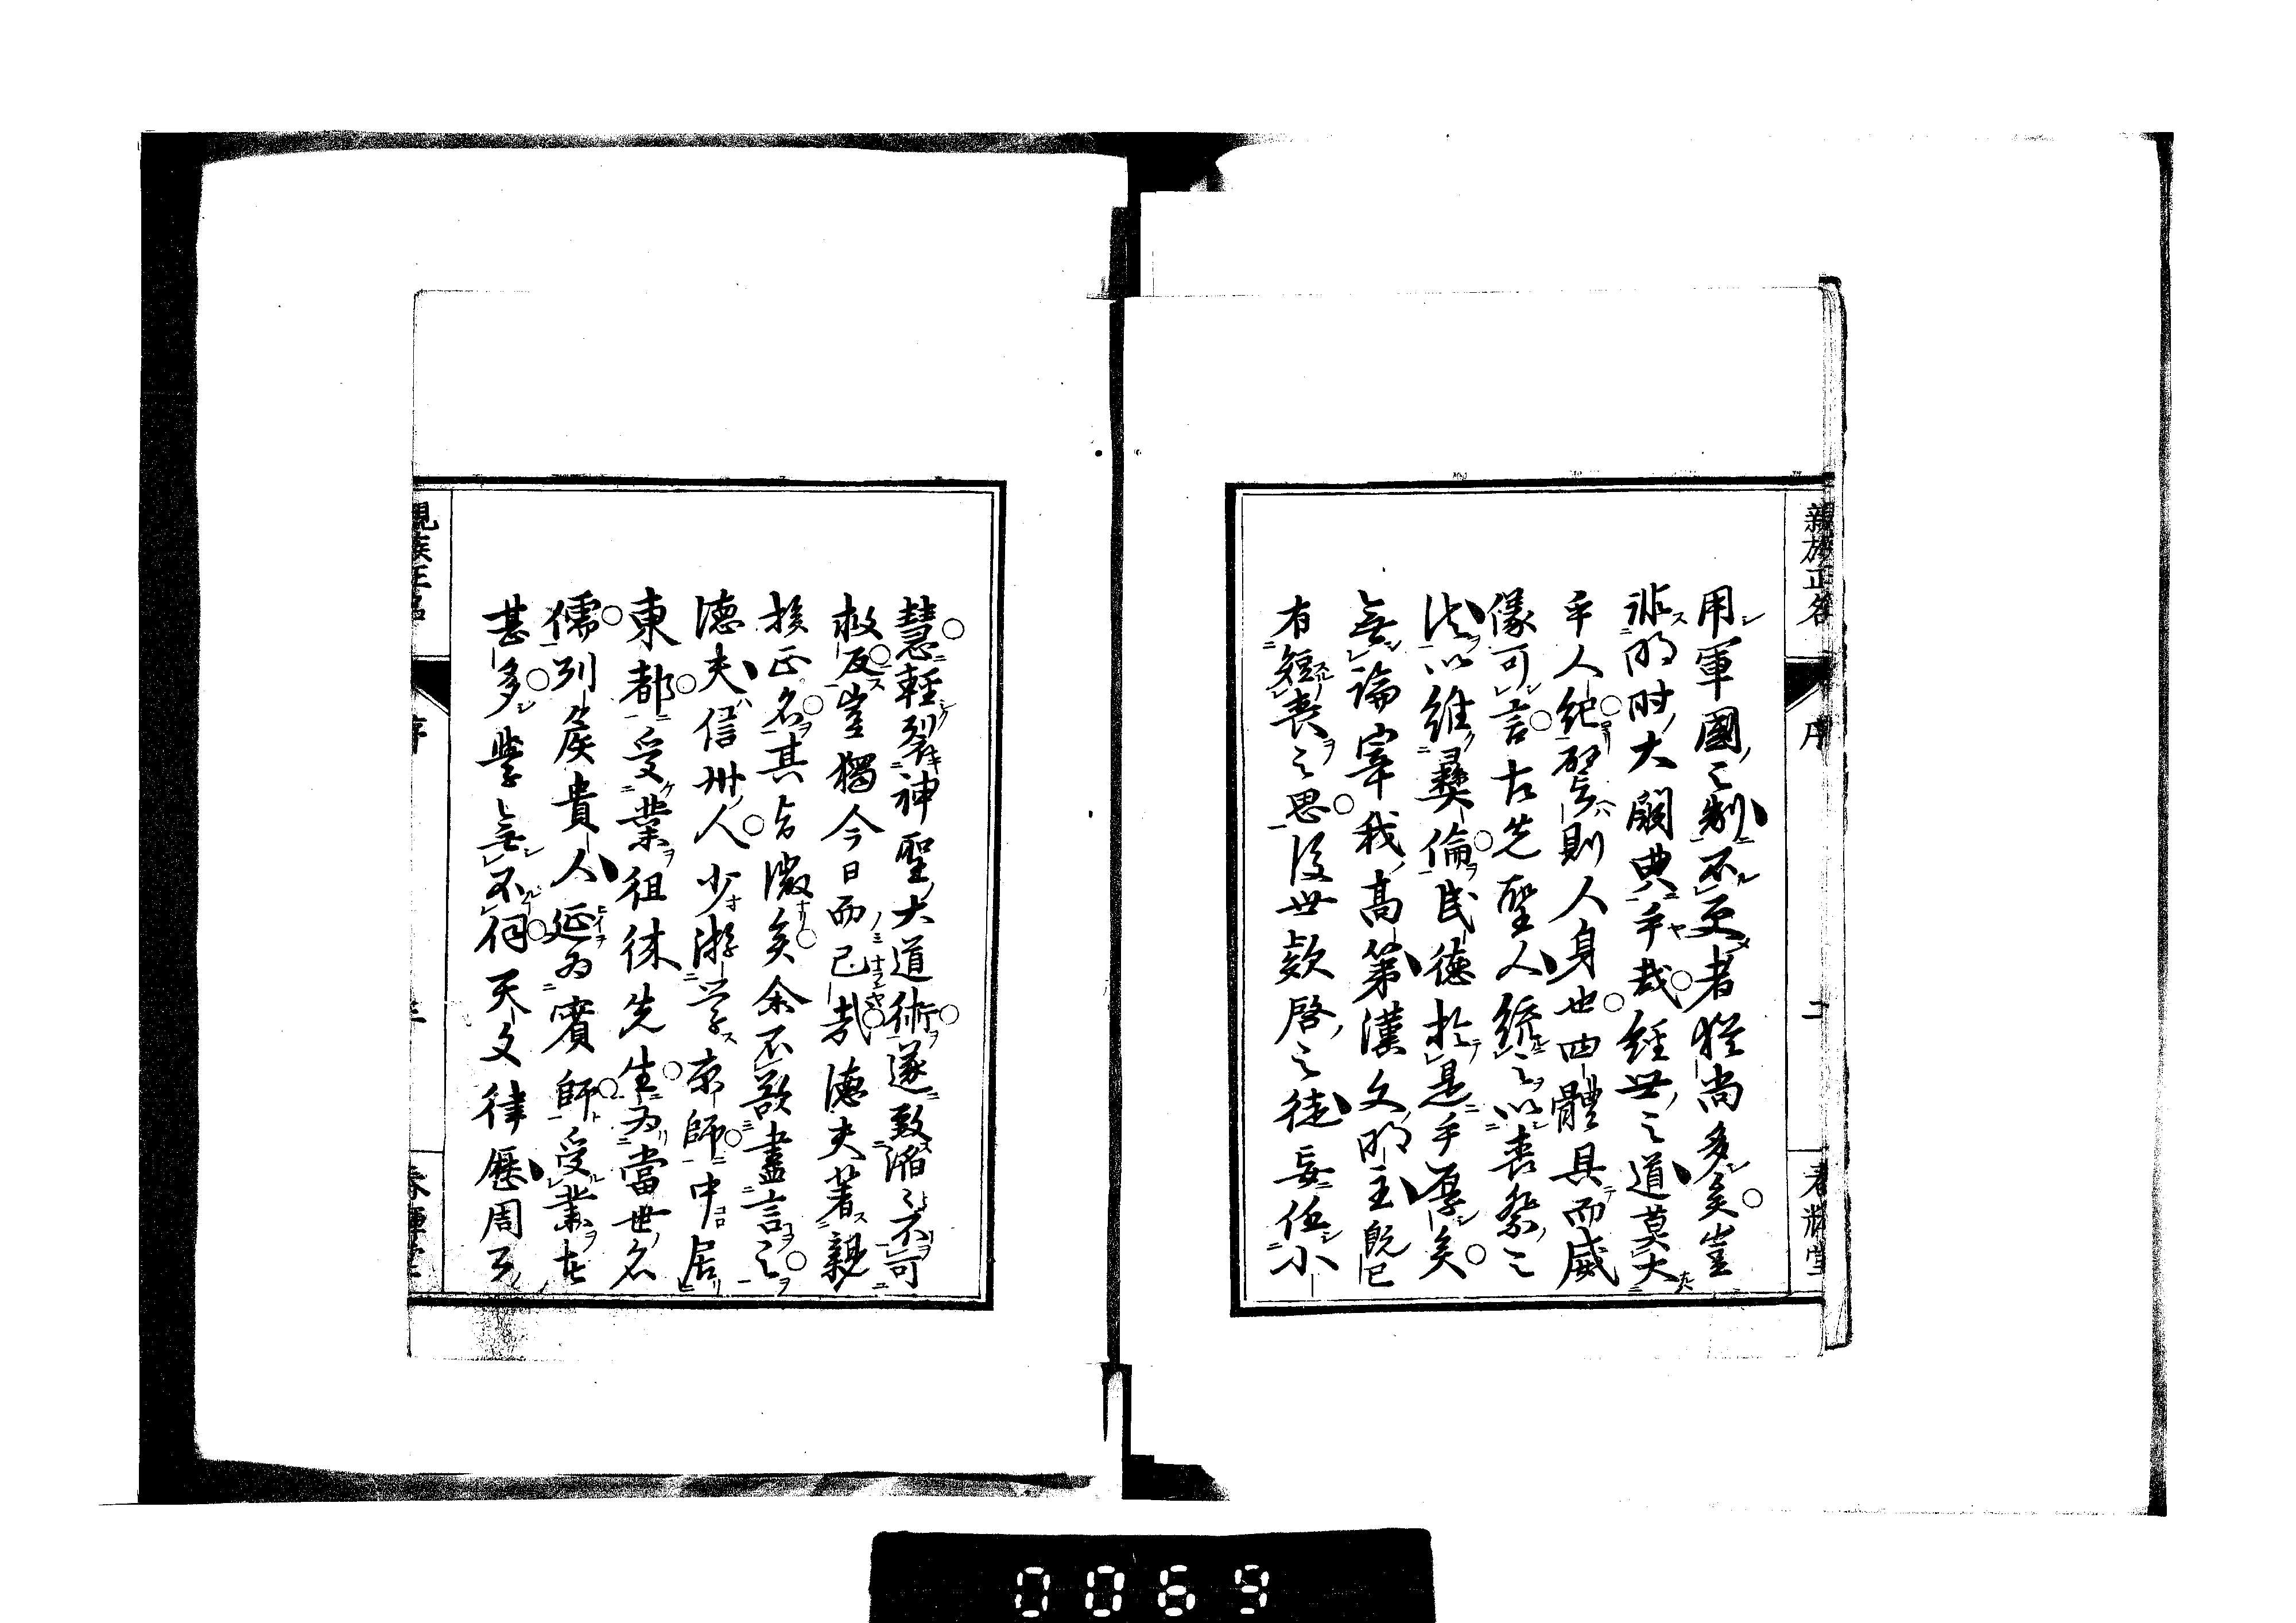 親族正名
序
二
春輝堂
用軍國之制不更者猶尚多矣豈
非明時大闕典乎哉經世之道莫大
乎人紀廢則人身也四體具而威
儀可言古先聖人統之以喪祭之
法以維彝倫民德於是乎厚矣
無論宰我高第漢文明主既已
有短喪之思後世欵啓之徒妄任小
慧輕裂神聖大道術遂致滔々不可
救反豈獨今日而已哉德夫著親
族正名其旨微矣余不敢盡言之
德夫信州人少游学京師中居
東都受業徂徠先生為當世名
儒列侯貴人延為賓師受業者
甚多學無不伺天文律歷周
親族正名
序
三
春輝堂
0069